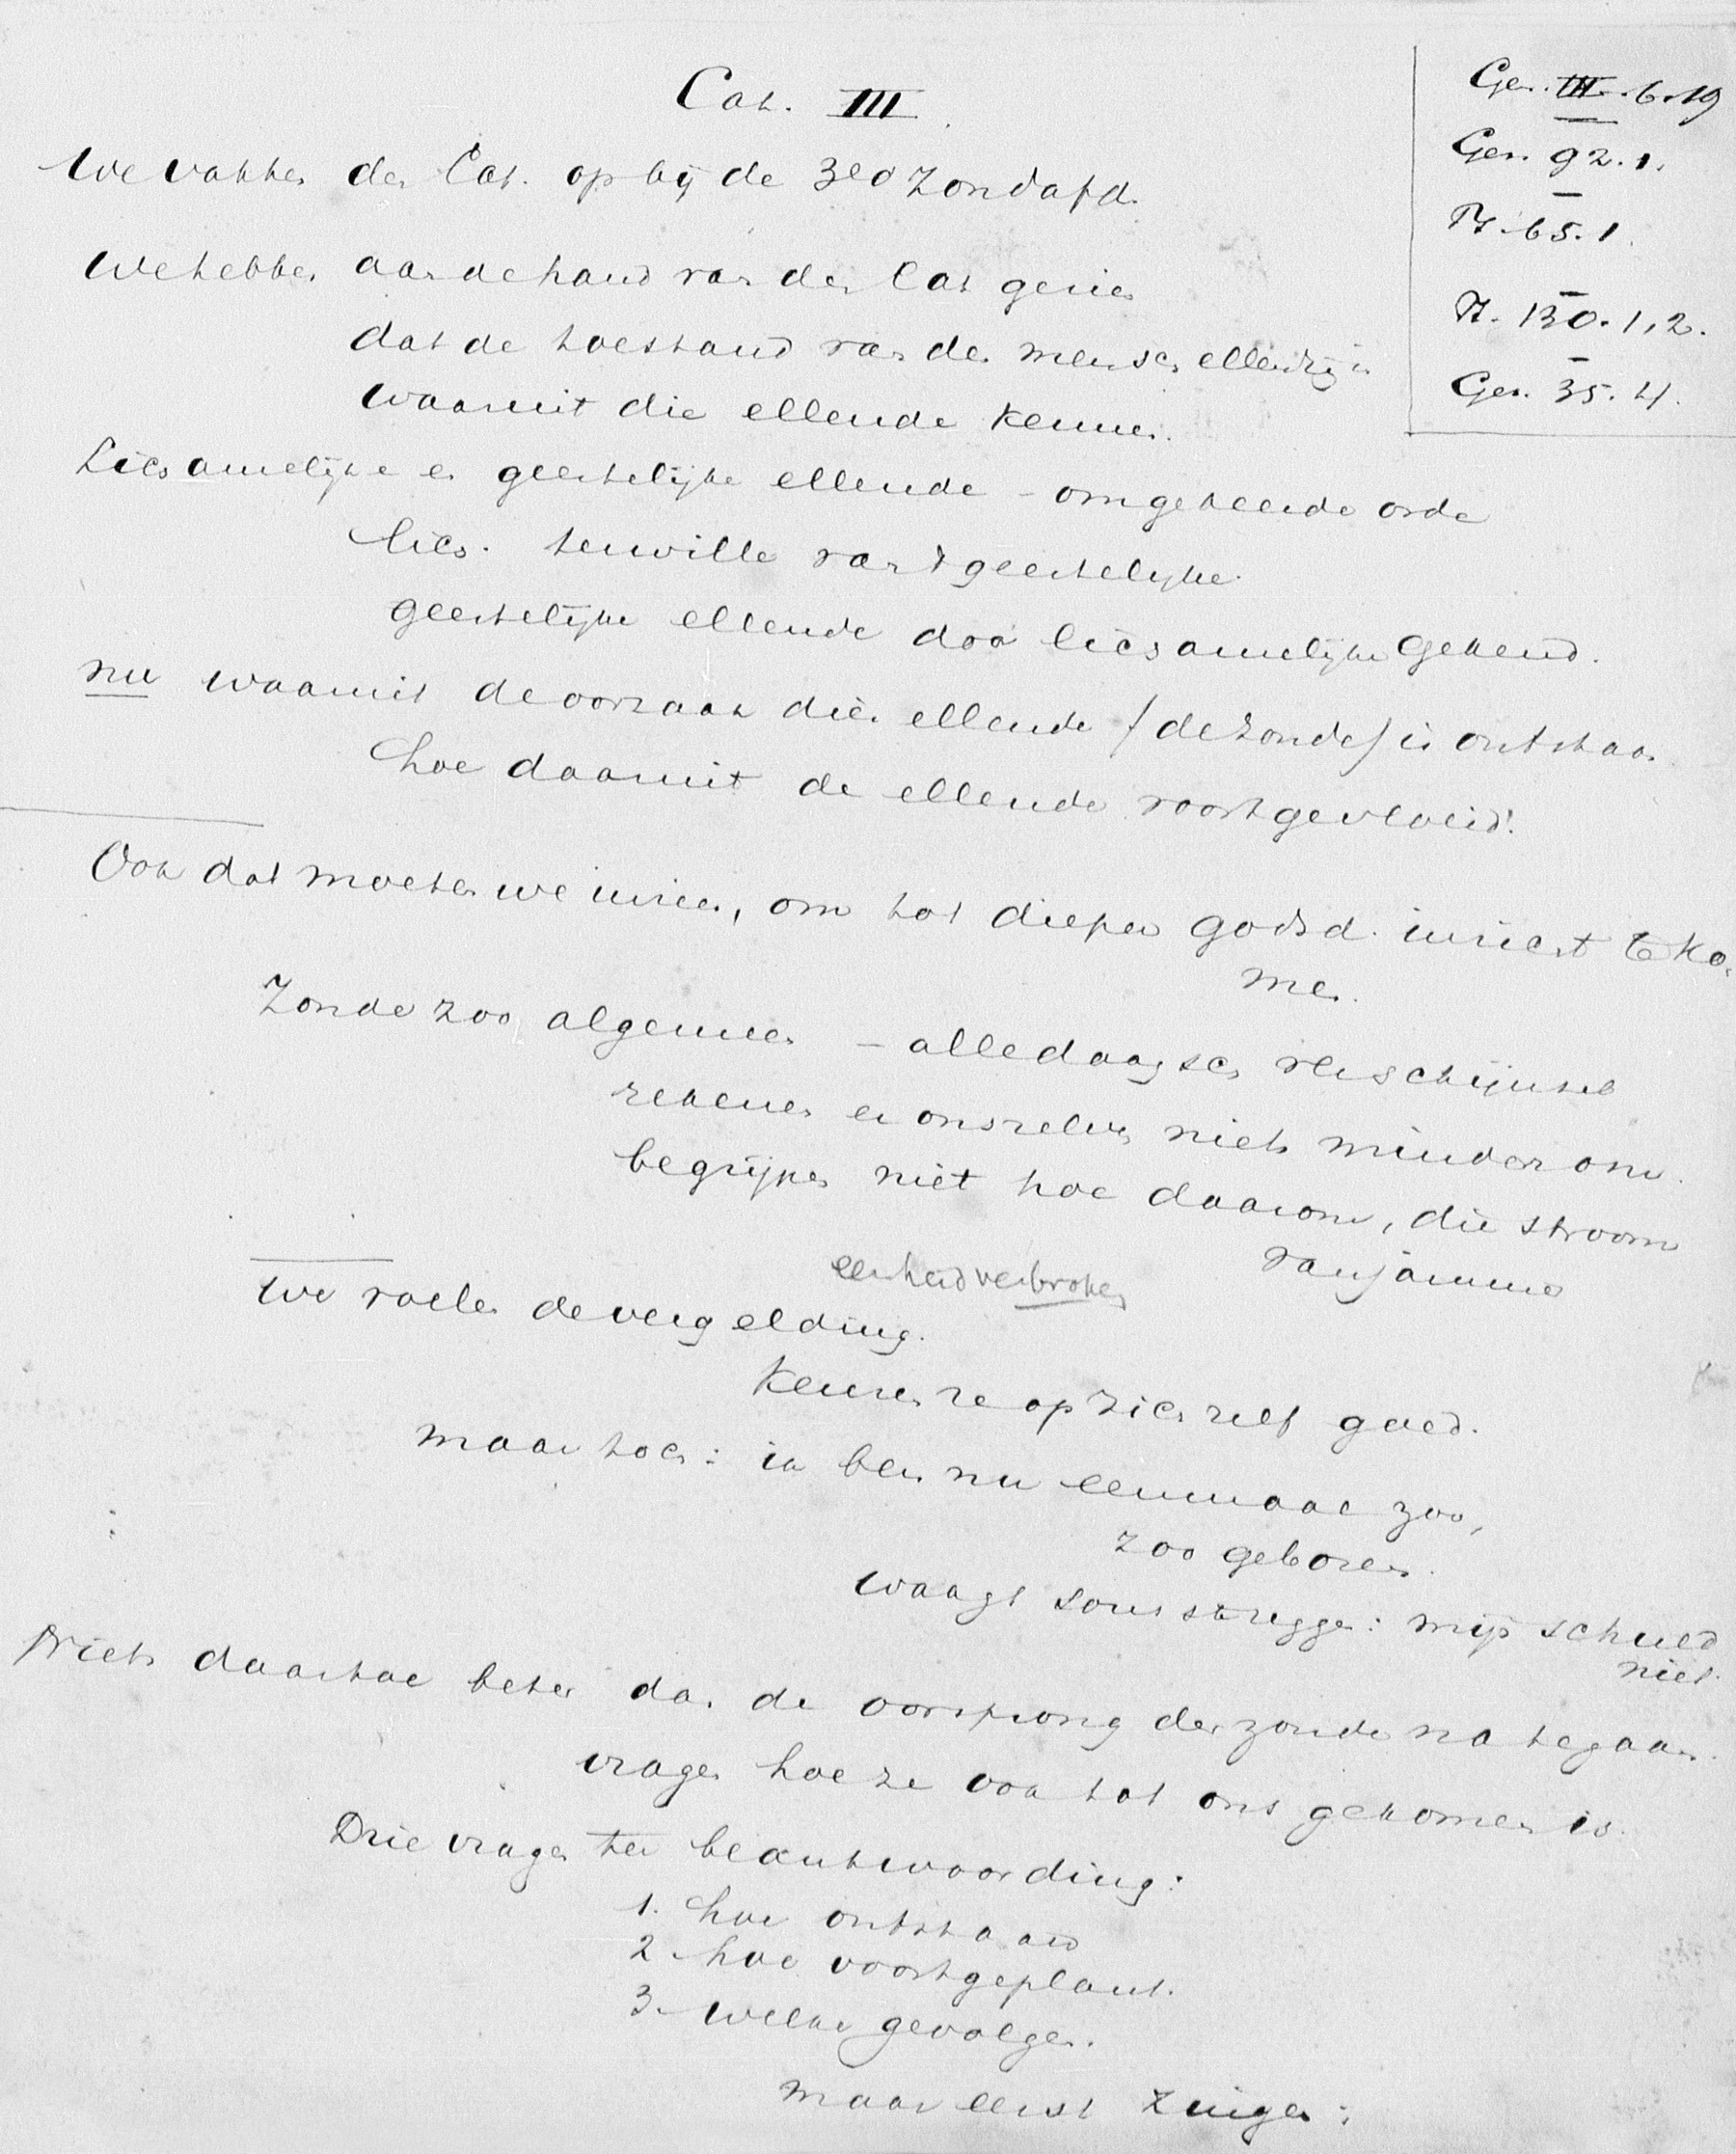 Cat. III
Gez. III. 6. 19
Gez. 92. 1.
Ps. 65. 1.
Ps. 130. 1, 2.
Gez. 35. 4.
We vatten den Cat. op bij de 3e Zondafd.
We hebben aan de hand van den Cat gezien
dat de toestand van den mensch ellendig is
waaruit die ellende kennen.
Lichamelijke en geestelijke ellende - omgekeerde orde
lich. terwille van 't geestelijke.
geestelijke ellende door lichamelijke gekend.
nu waaruit de oorzaak dier ellende (de zonde) is ontstaan
hoe daaruit de ellende voortgevloeid.
Ook dat moeten we inzien, om tot dieper godsd. inzicht te ko-
men.
Zonde zoo algemeen - alledaagsch verschijnsel
rekenen er onszelven niets minder om.
begrijpen niet hoe daarom, die stroom
van jammer
eenheid verbroken
We voelen de vergelding.
Kennen ze op zich zelf goed.
maar toch: ik ben nu eenmaal zoo,
zoo geboren.
waagt soms te zeggen: mijn schuld
niet.
Niets daartoe beter dan de oorsprong der zonde na te gaan.
vragen hoe ze ook tot ons gekomen is.
Drie vragen ter beantwoording:
1. hoe ontstaan
2. hoe voortgeplant.
3. welke gevolgen.
maar eerst zingen: